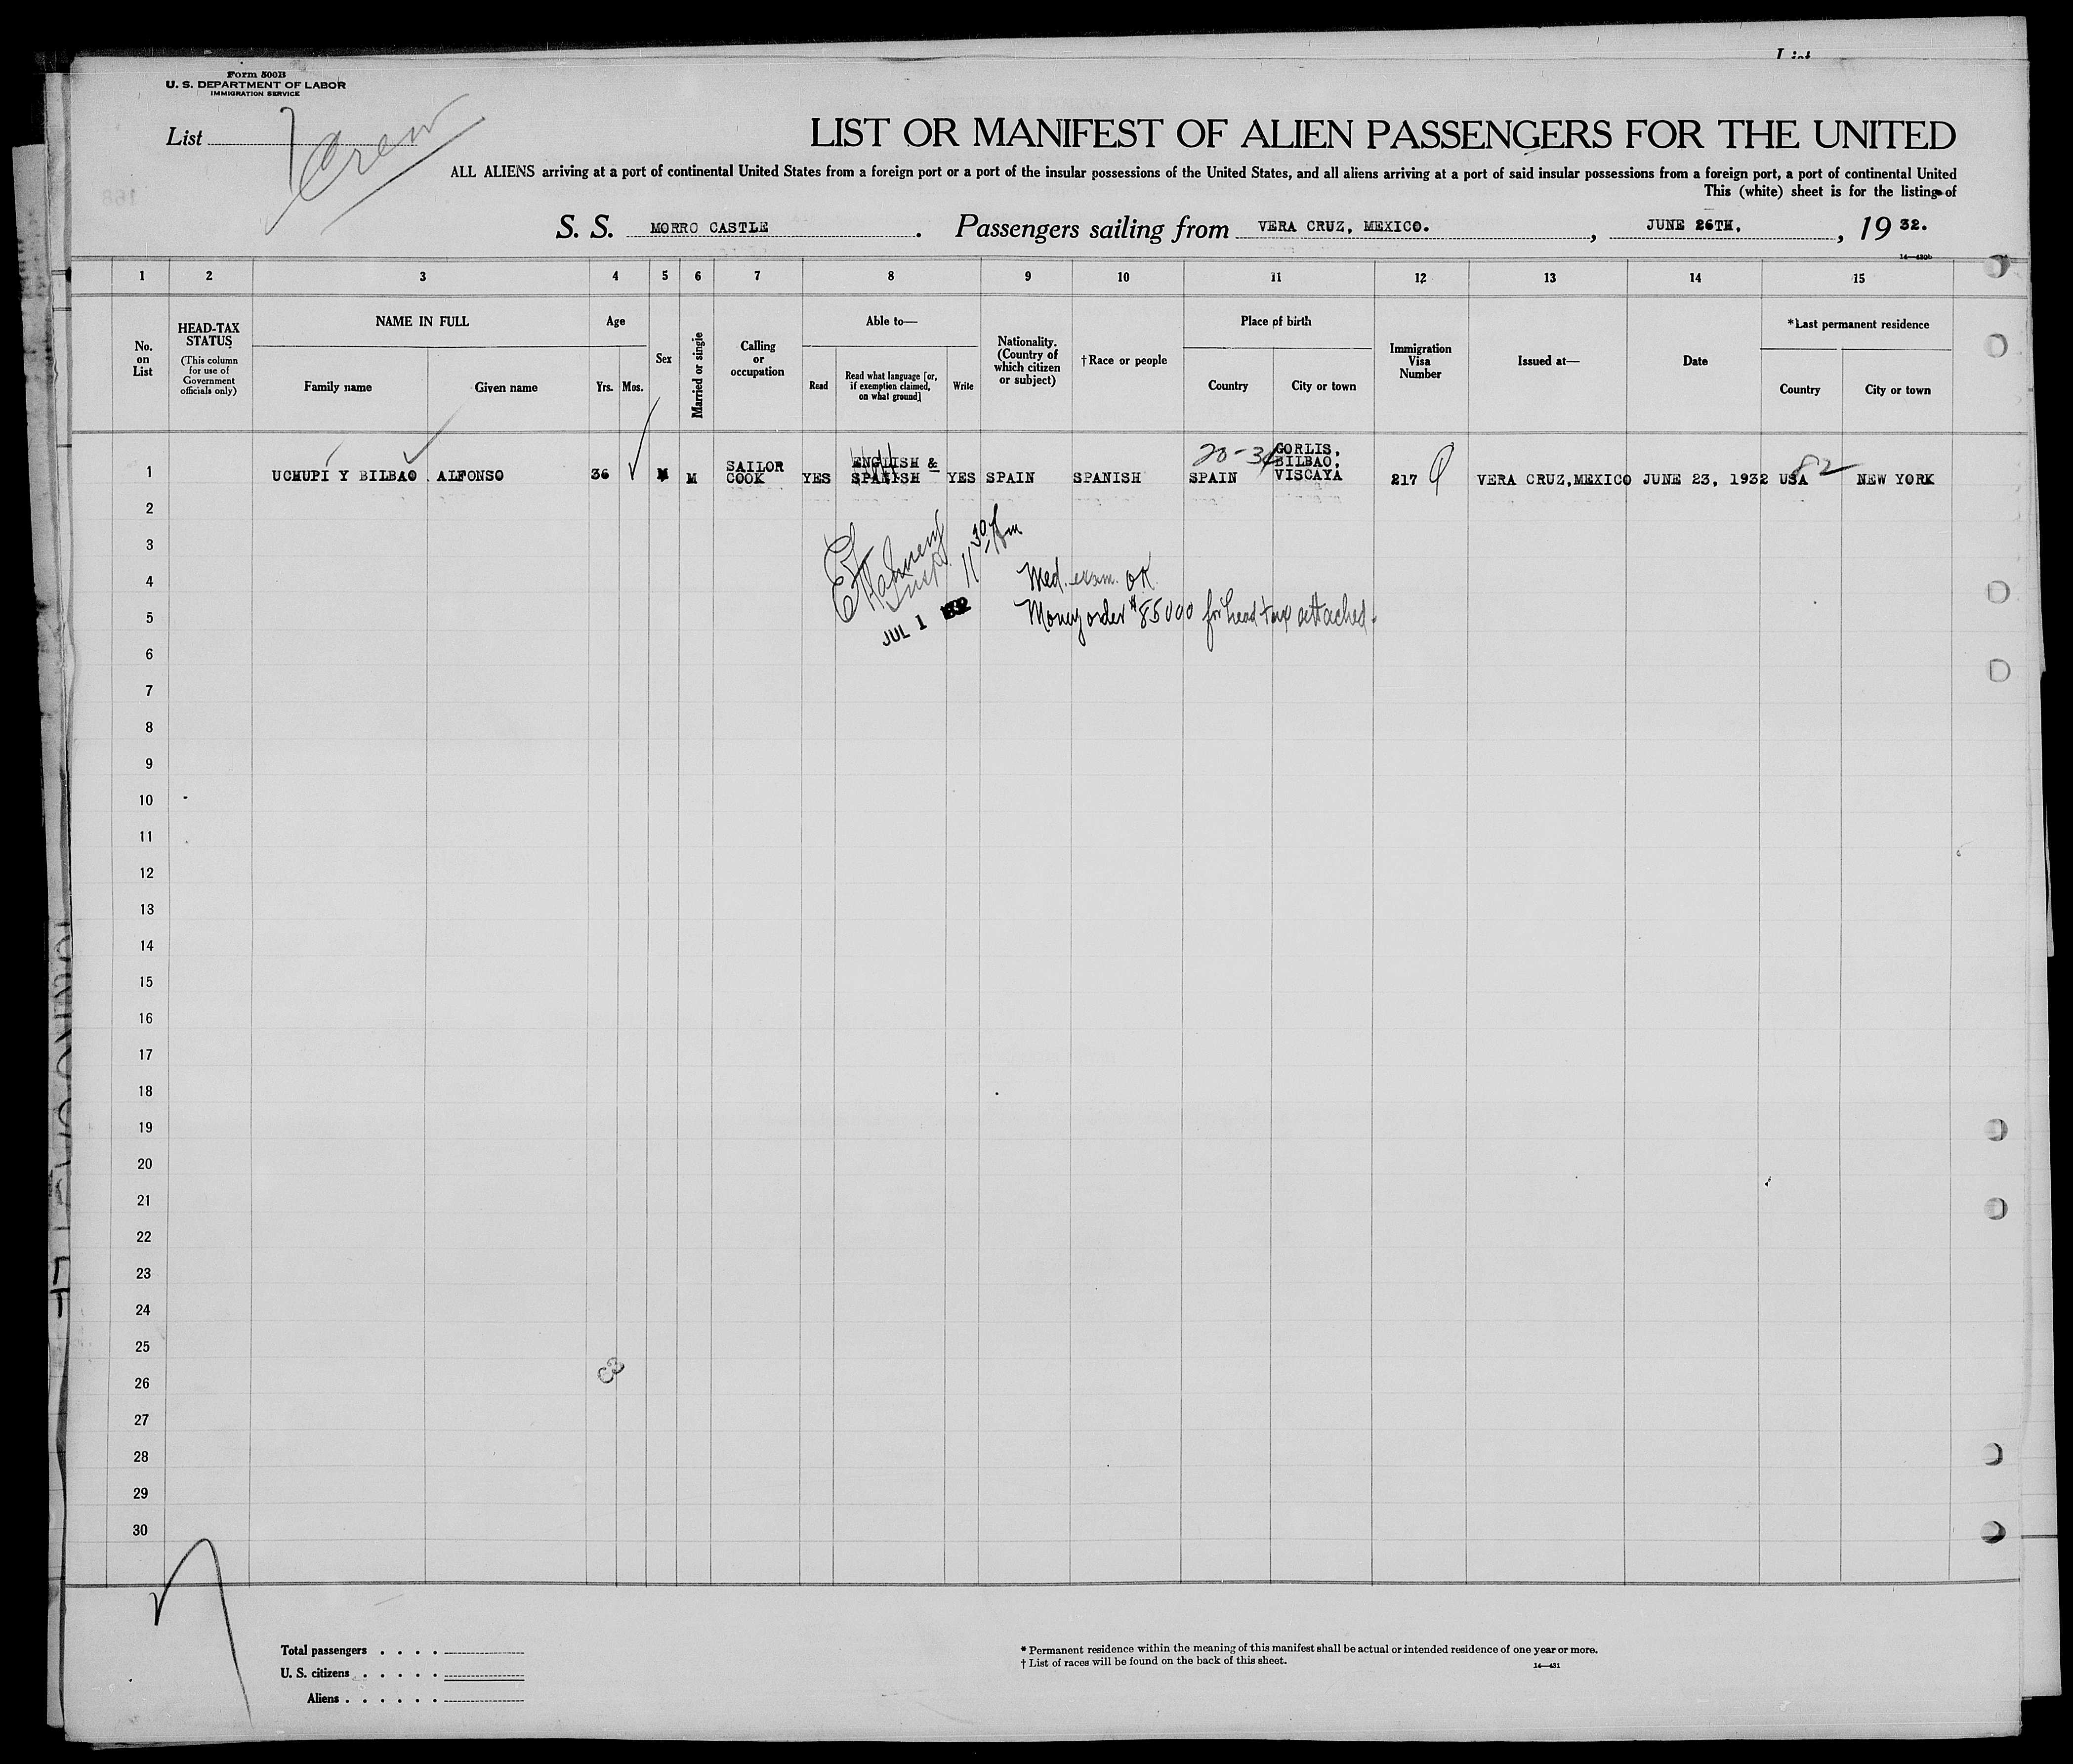 List
Form 500B
U. S. DEPARTMENT OF LABOR
IMMIGRATION SERVICE
List
Crew
LIST OR MANIFEST OF ALIEN PASSENGERS FOR THE UNITED
ALL ALIENS arriving at a port of continental United States from a foreign port or a port of the insular possessions of the United States, and all aliens arriving at a port of said insular possessions from a foreign port, a port of continental United
This (white) sheet is for the listing of
S. S. MORRO CASTLE. Passengers sailing from VERA CRUZ, MEXICO., JUNE 26TH., 1932.
14—430b
1 2 3 4 5 6 7 8 9 10 11 12 13 14 15
No. on List
HEAD-TAX STATUS
(This column for use of Government officials only)
NAME IN FULL
Family name
Given name
Age
Yrs.
Mos.
Sex
Married or single
Calling or occupation
Able to—
Read
Read what language [or, if exemption claimed, on what ground]
Write
Nationality. (Country of which citizen or subject)
†Race or people
Place of birth
Country
City or town
Immigration Visa Number
Issued at—
Date
*Last permanent residence
Country
City or town
1 UCHUPI Y BILBAO ALFONSO 36 M M SAILOR COOK YES ENGLISH & SPANISH YES SPAIN SPANISH SPAIN GORLIS, BILBAO, VISCAYA 217 VERA CRUZ, MEXICO JUNE 23, 1932 USA NEW YORK
82
2
3
4
5
6
7
8
9
10
11
12
13
14
15
16
17
18
19
20
21
22
23
24
25
26
27
28
29
30
11 30
Med. exam. OK
Money order #85000 for head tax attached.
JUL 1 1932
Total passengers . . . .
U. S. citizens . . . . .
Aliens . . . . . .
* Permanent residence within the meaning of this manifest shall be actual or intended residence of one year or more.
† List of races will be found on the back of this sheet.
14—431